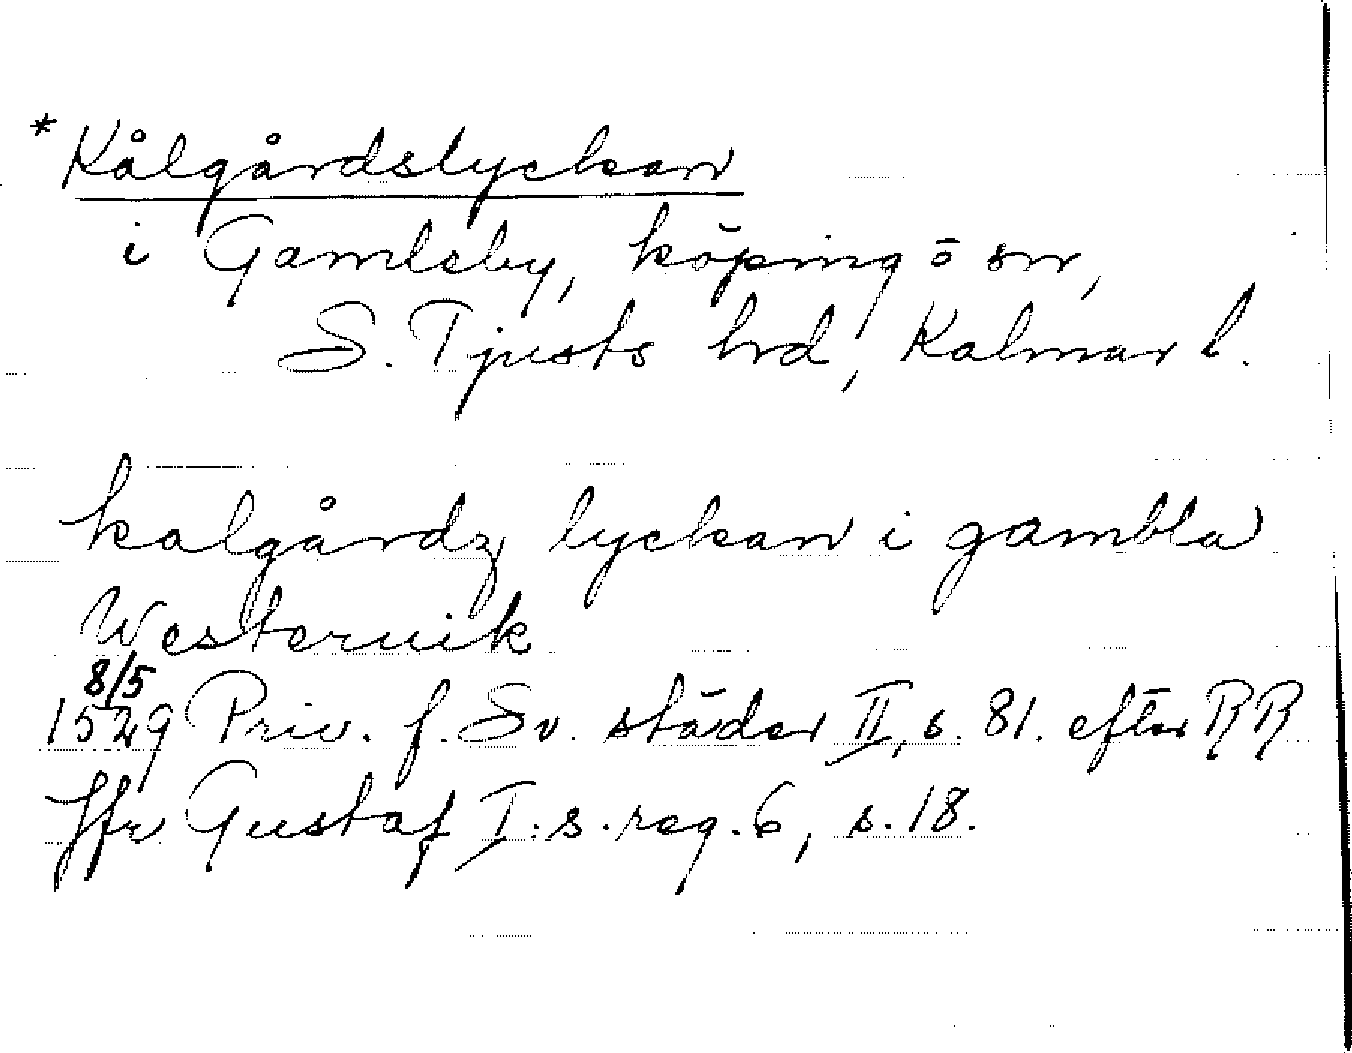 *Kålgårdslyckan
i Gamleby, köping o sn,
S. Tjusts hrd, Kalmar l.
kalgårdz lyckan i gambla
Westeruik
8/5
1529 Priv. f. Sv. städer II, s. 81. efter RR
Jfr Gustaf I:s. reg. 6, s. 18.